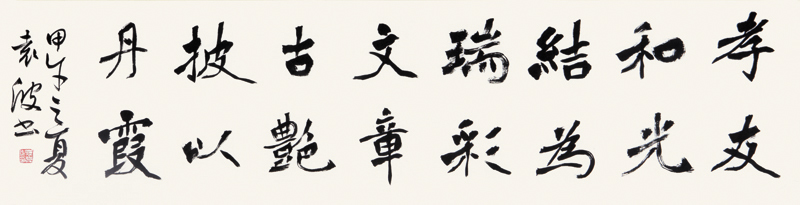 孝友
和光
結為
瑞彩
文章
古艷
披以
丹霞
甲午之夏
袁波书